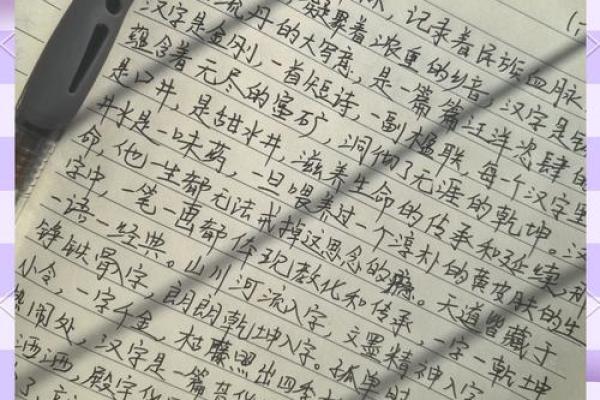 ,记录着民族血脉
凝聚着浓重的乡音,汉字是
流丹的大写意,是一篇篇汪洋恣肆的
汉字是 ,一首短诗,一副楹联,每一个汉字里
蕴含着无尽的宝矿,洞彻了无涯的乾坤。汉
是口井,是甜水井,滋养生命的传承和延续,那
井水是一味药,一旦喂养过一个淳朴的黄皮肤的生
命,他一生都无法戒掉这思念的瘾。天道皆藏于
字中,一笔一画都体现教化和传承,一字一乾坤
一语一经典。山川河流入字,文墨精神入字
铮铁骨入字,朗朗乾坤入字。孤单时
小令,一字千金,枯藤 出四
热闹处,汉字是一篇
洒洒,